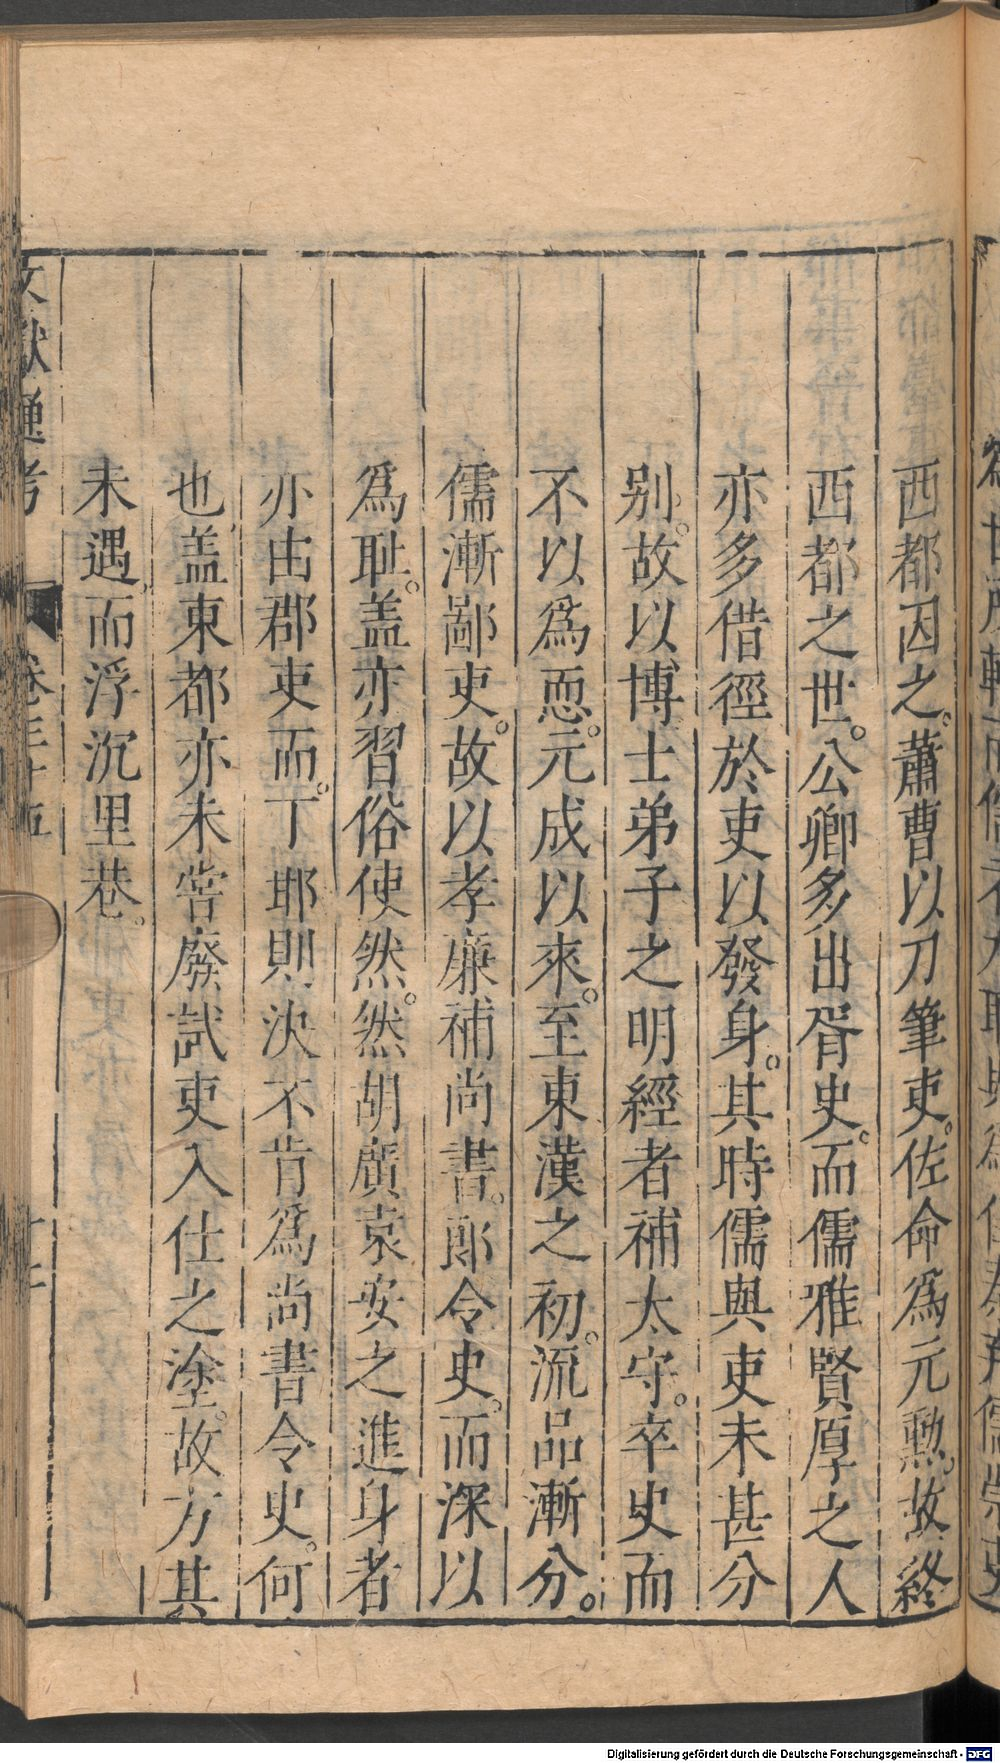 西都因之。蕭曹以刀筆吏。佐命爲元勲。故終
西都之世。公卿多出胥史。而儒雅賢厚之人
亦多借徑於吏以發身。其時儒與吏未甚分
别。故以博士弟子之明經者補太守。卒史而
不以爲恧。元成以來。至東漢之初。流品漸分。
儒漸鄙吏。故以孝廉補尚書。郎令史。而深以
爲耻。盖亦習俗使然。然胡廣袁安之進身者
亦由郡吏而。丁邯則決不肯爲尚書令史。何
也。盖東都亦未甞廢試吏入仕之塗。故方其
未遇。而浮沉里巷。
文獻通考 卷三十五
Digitalisierung gefördert durch die Deutsche Forschungsgemeinschaft - DFG